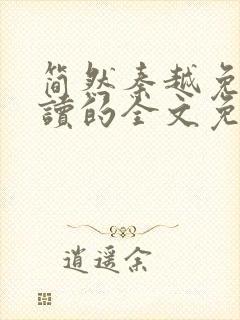 简然秦越免
读的全文免
逍遥余